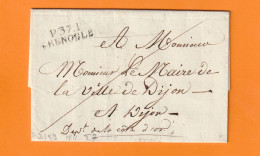 P.37.P.
GRENOBLE
A Monsieur
Monsieur Le Maire de
la Ville de Dijon
A Dijon
Dep.t de la côte d'or